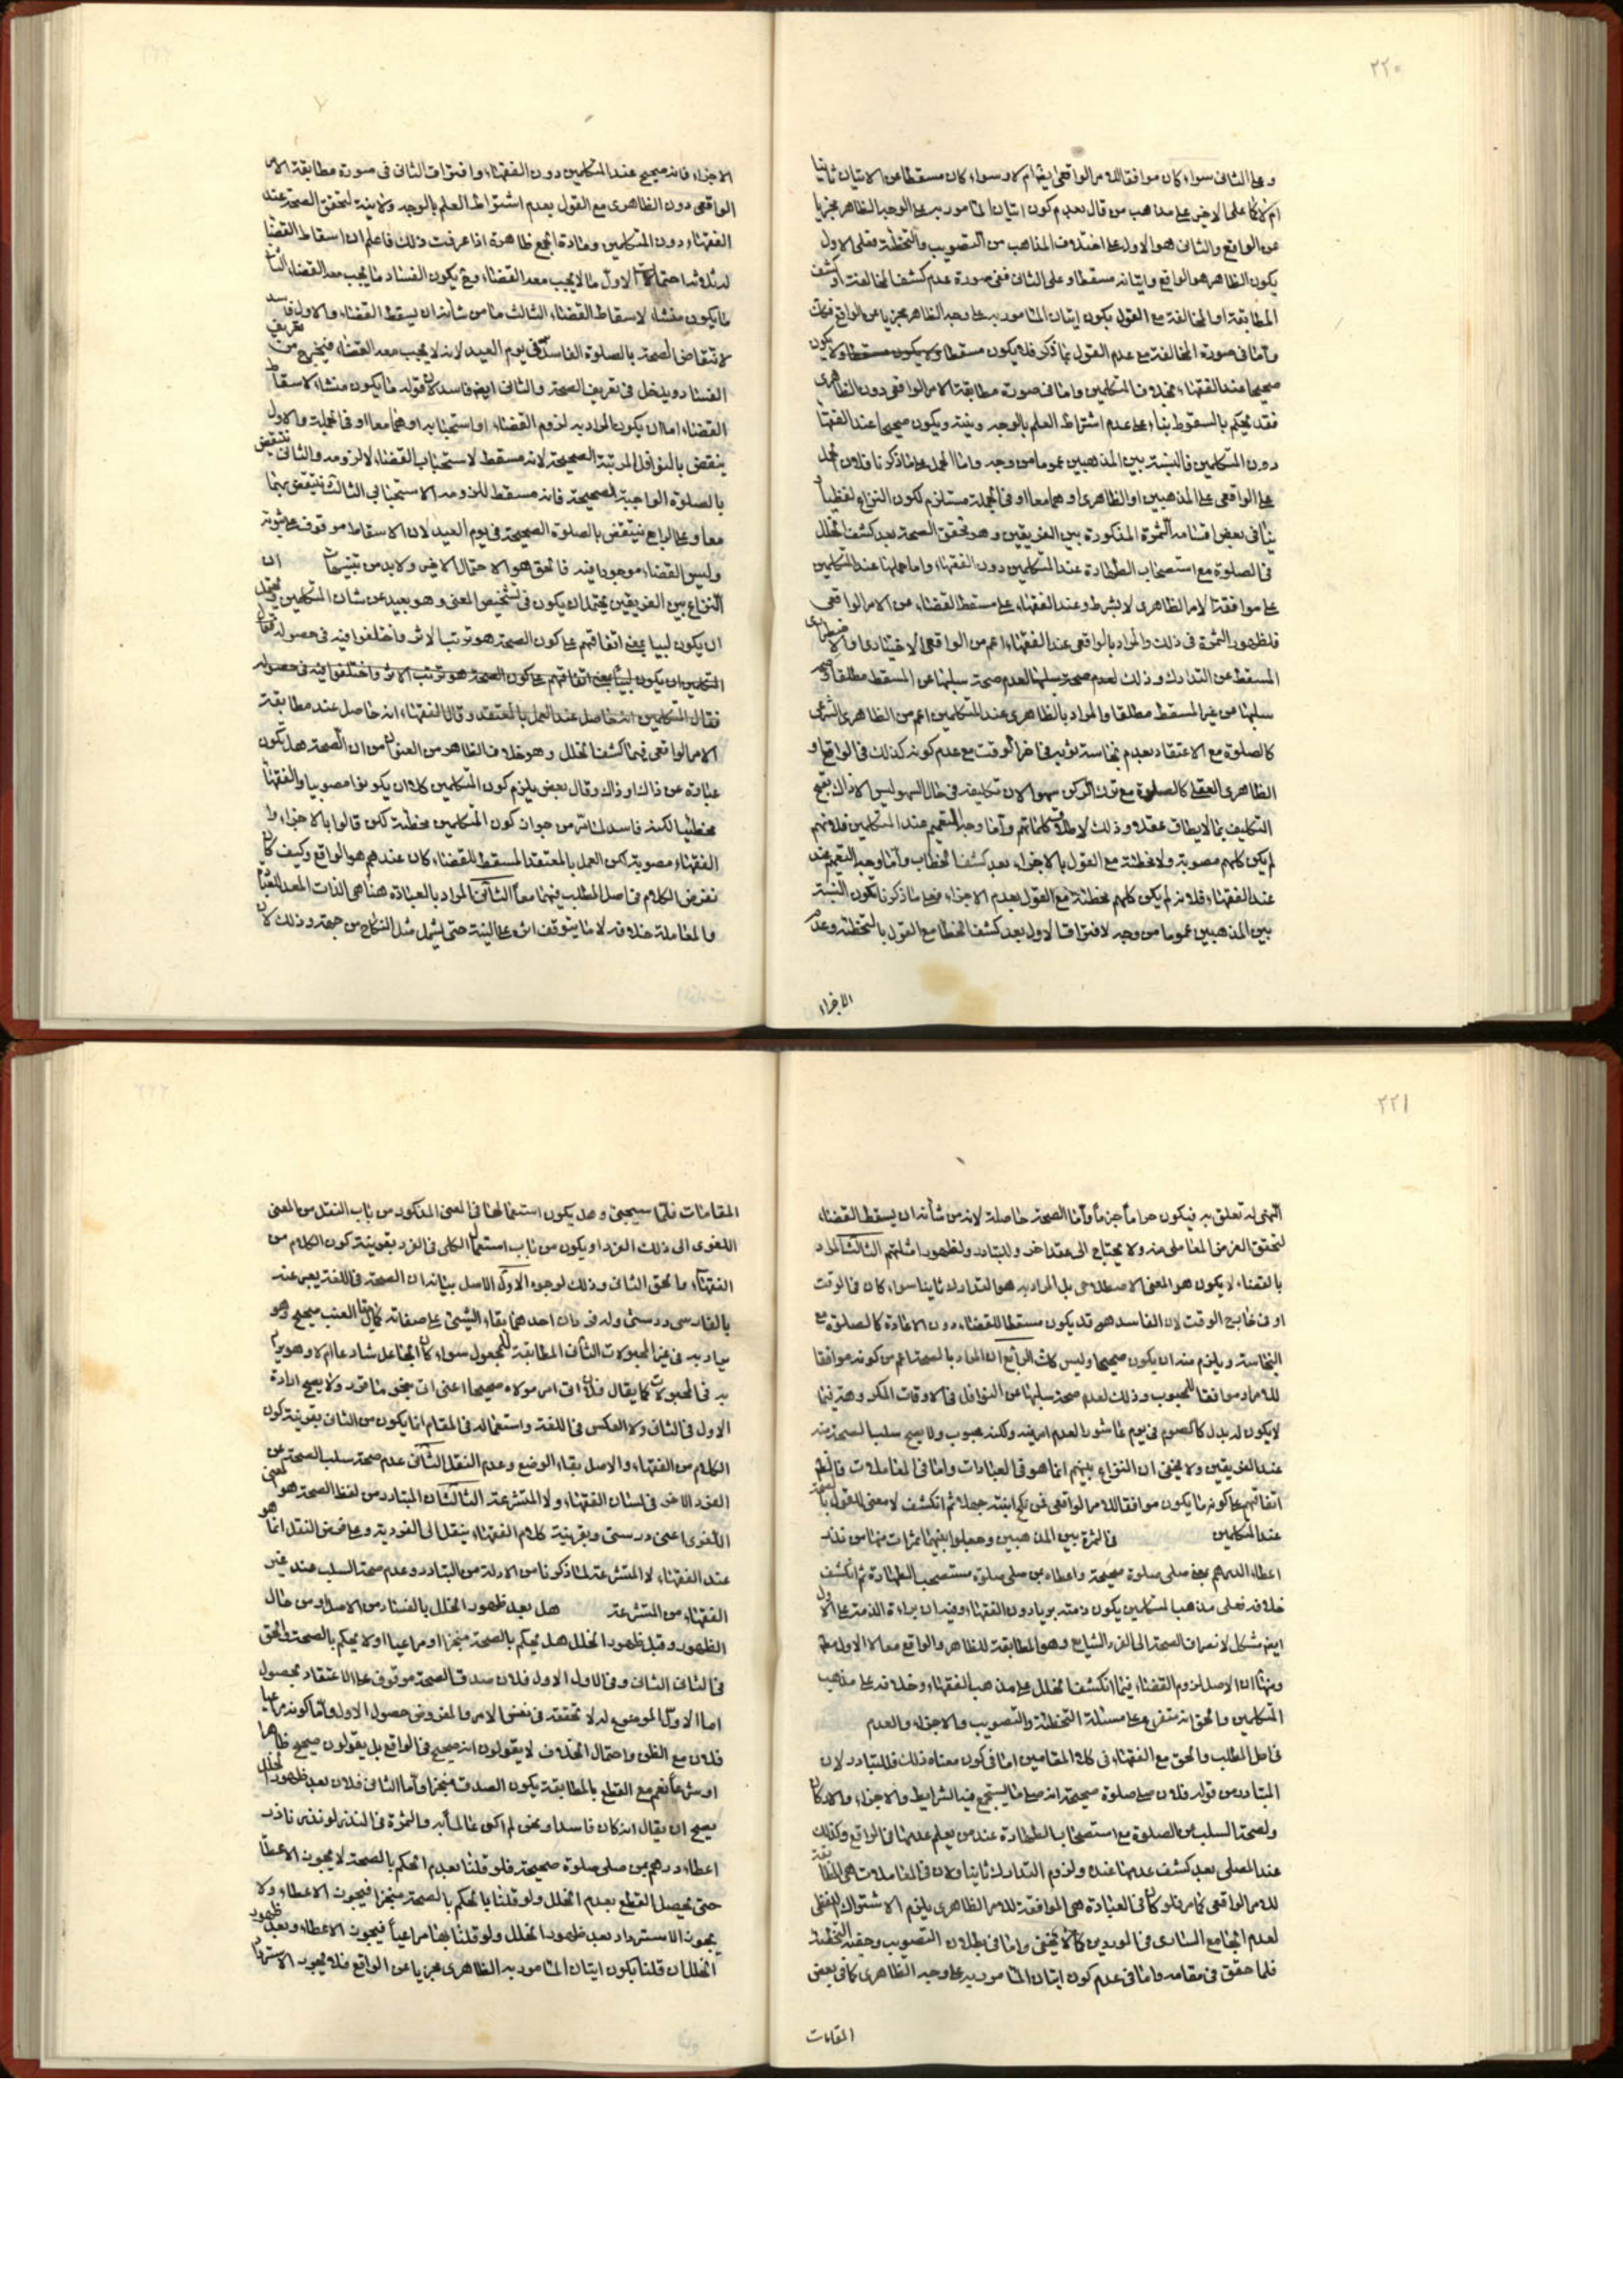 ٢٢٠
وعلى الثانى سواء كان موافقا للامر الواقعى ايضا ام لا وسواء كان مسقطا عن الاتيان ثانيا
ام لا كما على الاخير على مذاهب من قال بعدم كون اتيان المامور به على الوجه الظاهر مجزيا
عن الواقع والثانى هو الاول على اختلاف المذاهب من التصويب والتخطئة فعلى الاول
يكون الظاهر هو الواقع واتيانه مسقطا وعلى الثانى ففى صورة عدم كشف المخالفة او كشف
المطابقة او المخالفة مع القول بكون اتيان المامور به على وجه الظاهر مجزيا عن الواقع فكك
واما فى صورة المخالفة مع عدم القول بما ذكر فلا يكون مسقطا ولا يكون مسقطا ولا يكون
صحيحا عند الفقهاء بخلاف المتكلمين واما فى صورة مطابقة الامر الواقعى دون الظاهرى
فقد يحكم بالسقوط بناء على عدم اشتراط العلم بالوجه ونيته ويكون صحيحا عند الفقهاء
دون المتكلمين فالنسبة بين المذهبين عموما من وجه واما الحمل على ما ذكرنا فلان الحمل
على الواقعى على المذهبين او الظاهرى او هما معا او فى الجملة مستلزم لكون النزاع لفظيا
ينافى بعض اقسامه الثمرة المذكورة بين الفريقين وهو تحقق الصحة بعد كشف الخلل
فى الصلوة مع استصحاب الطهارة عند المتكلمين دون الفقهاء واما حملها عند المتكلمين
على موافقتها لامر الظاهرى لا بشرط وعند الفقهاء على مسقط القضاء عن الامر الواقعى
فلظهور الثمرة فى ذلك والمراد بالواقعى عند الفقهاء اعم من الواقعى الاختيارى والاضطرارى
المسقط عن التدارك وذلك لعدم صحة سلبها لعدم صحة سلبها عن المسقط مطلقا وصحة
سلبها من غير المسقط مطلقا والمراد بالظاهرى عند المتكلمين اعم من الظاهرى الشرعى
كالصلوة مع الاعتقاد بعدم نجاسة ثوبه فى اخر الوقت مع عدم كونه كذلك فى الواقع او
الظاهرى العقلى كالصلوة مع ترك الركن سهوا لان تكليفه فى حال السهو ليس الا ذاك بقبح
التكليف بما لا يطاق عقلا وذلك لاطلاق كلماتهم واما وجه التعميم عند المتكلمين فلانهم
لم يكن كلهم مصوبة ولا مخطئة مع القول بالاجزاء بعد كشف الخطاب واما وجه التعميم عند
عند الفقهاء فلانه لم يكن كلهم مخطئة مع القول بعدم الاجزاء فعلى ما ذكرنا تكون النسبة
بين المذهبين عموما من وجه لافتراق الاول بعد كشف الخطا مع القول بالتخطئة وعدم
الاجزاء
الاجزاء فانه صحيح عند المتكلمين دون الفقهاء وافتراق الثانى فى صورة مطابقة الامر
الواقعى دون الظاهرى مع القول بعدم اشتراط العلم بالوجه ولا نيته لتحقق الصحة عند
الفقهاء دون المتكلمين ومادة الجمع ظاهرة اذا عرفت ذلك فاعلم ان اسقاط القضا
له ثلاثة احتمالات الاول ما لا يجب معه القضاء وح يكون الفساد ما يجب معه القضاء الثانى
ما يكون منشاء لاسقاط القضاء الثالث ما من شأنه ان يسقط القضاء والاول فاسد
لانتقاض الصحة بالصلوة الفاسدة فى يوم العيد لانه لا يجب معه القضاء فيخرج من تعريف
الفساد ويدخل فى تعريف الصحة والثانى ايض فاسد لان قوله ما يكون منشاء لاسقاط
القضاء اما ان يكون المراد به لزوم القضاء او استحبابه او هما معا او فى الجملة والاول
ينقض بالنوافل المرتبة الصحيحة لانه مسقط لاستحباب القضاء لا لزومه والثانى ينتقض
بالصلوة الواجبة الصحيحة فانه مسقط للزومه لا استحبابى الثالث فينتقض بهما
معا وعلى الرابع فينتقض بالصلوة الصحيحة فى يوم العيد لان الاسقاط موقوف على ثبوته
وليس القضاء موجودا فيه فالحق هو الاحتمال الاخير ولا بد من تنبيهات ان
النزاع بين الفريقين يحتمل ان يكون فى تشخيص المعنى وهو بعيد عن شان المتكلمين ويحتمل
ان يكون لبيا بمعنى اتفاقهم على كون الصحة هو ترتب الاثر واختلفوا فيه فى حصوله فقال
المتكلمين ان يكون لبيا بمعنى اتفاقهم على كون الصحة هو ترتب الاثر واختلفوا فيه فى حصوله
فقال المتكلمين انه حاصل عند العمل بالمعتقد وقال الفقهاء انه حاصل عند مطابقة
الامر الواقعى فيما كشف الخلل وهو خلاف الظاهر من العنوان من ان الصحة هل تكون
عبارة عن ذاك او ذاك وقال بعض يلزم كون المتكلمين كلا ان يكونوا مصوبيا والفقهاء
مخطئيا لكنه فاسد لما مر من جواز كون المتكلمين مخطئة لكن قالوا بالاجزاء او
الفقهاء مصوبة لكن العمل بالمعتقد المسقط للقضاء كان عندهم هو الواقع وكيف كان
نفرض الكلام فى اصل المطلب فيهما معا الثانى المراد بالعبادة هنا هى الذات المعد للتعبد
والمعاملة خلافه لا ما يتوقف اثره على النية حتى يشمل مثل النكاح من جهة وذلك لان
٢٢١
النهى له تعلق به فيكون حراما جزما واما الصحة حاصلة لانه من شأنه ان يسقط القضاء
لتحقق الغرض المعاملى منه ولا يحتاج الى عقد اخر وللتبادر ولظهور امثلتهم الثالث المراد
بالقضاء لا يكون هو المعنى الاصطلاحى بل المراد به هو التدارك ثانيا سواء كان فى الوقت
او فى خارج الوقت لان الفاسد هو قد يكون مسقطا للقضاء دون الاعادة كالصلوة مع
النجاسة ويلزم منه ان يكون صحيحا وليس كك الرابع ان المراد بالصحة اعم من كونه موافقا
للامر او موافقا للمحبوب وذلك لعدم صحة سلبها عن النوافل فى الاوقات المكروهة فيما
لا يكون له بدل كالصوم فى يوم عاشورا لعدم امر فيه ولكنه محبوب ولا يصح سلب الصحة منه
عند الفريقين ولا يخفى ان النزاع بينهم انما هو فى العبادات واما فى المعاملات فالظاهر
اتفاقهم على كونه ما يكون موافقا للامر الواقعى فمن نكح ابنته جهلا ثم انكشف لا معنى للقول بالصحة
عند المتكلمين فى الثمرة بين المذهبين وجعلوا بينهما ثمرات منها من نذر
اعطاء الدرهم بمن صلى صلوة صحيحة واعطاه من صلى صلوة مستصحب الطهارة ثم انكشف
خلافه فعلى مذهب المتكلمين يكون ذمته بريا دون الفقهاء وفيه ان براءة الذمة على الاول
ايض مشكل لانصراف الصحة الى الفرد الشايع وهو المطابقة للظاهر والواقع معا لا الاول فقط
ومنها ان الاصل لزوم القضاء فيما انكشف الخلل على مذهب الفقهاء وخلافه على مذهب
المتكلمين والحق انه متفرع على مسئلة التخطئة والتصويب والاجزاء والعدم
فى اصل المطلب والحق مع الفقهاء فى كلا المقامين اما فى كون معناه ذلك فللتبادر لان
المتبادر من قوله فلان صلى صلوة صحيحة انه صلى ما يستجمع فيه الشرايط والاجزاء والاركان
ولصحة السلب عن الصلوة مع استصحاب الطهارة عند من يعلم عدمها فى الواقع وكذلك
عند المصلى بعد كشف عدمها عنده ولزوم التدارك ثانيا ولان فى المعاملات هى المطابقة
للامر الواقعى كما مر فلو كان فى العبادة هى الموافقة للامر الظاهرى يلزم الاشتراك اللفظى
لعدم الجامع السارى فى الموردين كما لا يخفى واما فى بطلان التصويب وحقية التخطئة
فلما حقق فى مقامه واما فى عدم كون اتيان المامور به على وجه الظاهرى كافى بعض
المقامات
المقامات فلما سيجئ وهل يكون استعمالها فى المعنى المذكور من باب النقل من المعنى
اللغوى الى ذلك الفرد او يكون من باب استعمال الكلى فى الفرد بقرينة كون الكلام من
الفقهاء والحق الثانى وذلك لوجوه الاول الاصل بيانه ان الصحة فى اللغة يعبر عنه
بالفارسى درستى وله فردان احدهما بقاء الشيئ على صفاته كما يقال العنب صحيح وهو
يراد به فى غير المجعولات الثانى المطابقة للمجعول سواء كان الجاعل شارعا ام لا وهو يراد
به فى المجعولات كما يقال فلان اتى امر مولاه صحيحا اعنى اتى بنحو ما قرر ولا يصح ارادة
الاول فى الثانى ولا العكس فى اللغة واستعماله فى المقام انما يكون من الثانى بقرينة كون
الكلام من الفقهاء والاصل بقاء الوضع وعدم النقل الثانى عدم صحة سلب الصحة عن
الفرد الاخر فى لسان الفقهاء ولا المتشرعة الثالث ان المتبادر من لفظ الصحة هو المعنى
اللغوى اعنى درستى وبقرينة كلام الفقهاء ينقل الى الفردية وعلى فرض النقل انما هو
عند الفقهاء لا المتشرعة لما ذكرنا من الادلة من التبادر وعدم صحة السلب عند غير
الفقهاء من المتشرعة هل بعد ظهور الخلل بالفساد من الاصل او من حال
الظهور وقبل ظهور الخلل هل يحكم بالصحة منجزا او مراعيا او لا يحكم بالصحة والحق
فى الثانى الثانى وفى الاول الاول فلان صدق الصحة موقوف على الاعتقاد بحصول
اما الاول الموضوع له لا تحققه فى نفس الامر والمفروض حصول الاول واما كونه مراعيا
فلان مع الظن واحتمال الخلاف لا يقولون انه صحيح فى الواقع بل يقولون صحيح ظاهرا
او شرعا نعم مع القطع بالمطابقة يكون الصدق منجزا واما الثانى فلان بعد ظهور الخلل
يصح ان يقال انه كان فاسدا ونحن لم اكن عالما به والثمرة فى النذر لو نذر ناذر
اعطاء درهم بمن صلى صلوة صحيحة فلو قلنا بعدم الحكم بالصحة لا يجوز الاعطاء
حتى يحصل القطع بعدم الخلل ولو قلنا بالحكم بالصحة منجزا فيجوز الاعطاء ولا
يجوز الاسترداد بعد ظهور الخلل ولو قلنا بها مراعيا فيجوز الاعطاء وبعد ظهور
الخلل ان قلنا بكون اتيان المامور به الظاهرى مجزيا عن الواقع فلا يجوز الاسترداد